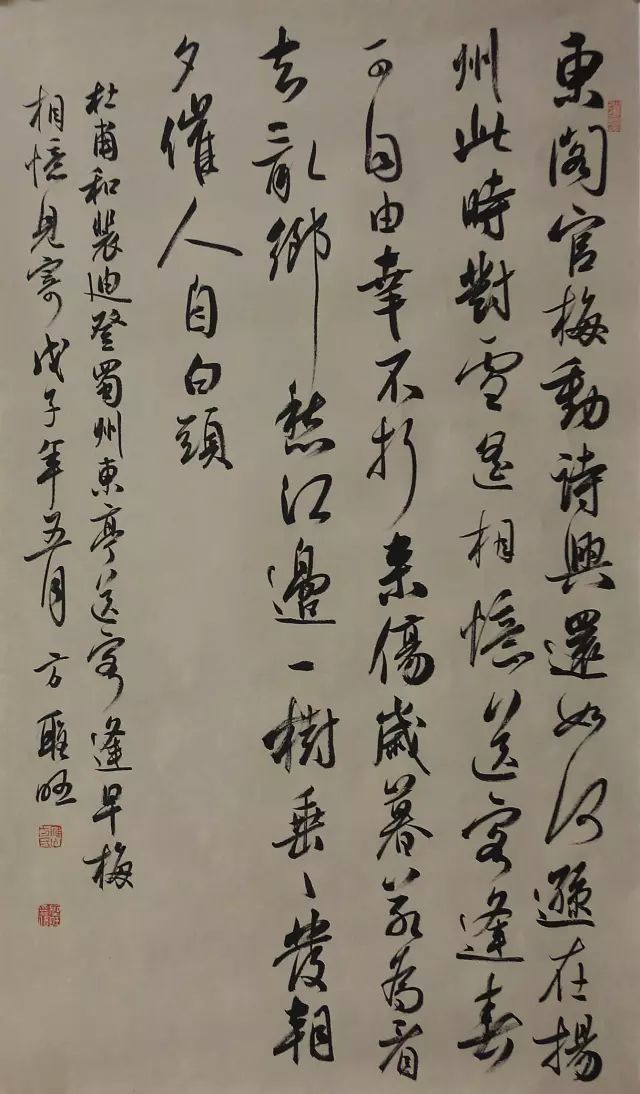 東閣官梅動詩興還如何遜在揚
州此時對雪遥相憶送客逢春
可自由幸不折來傷歲暮若為看
去亂鄉愁江邊一樹垂〻發朝
夕催人自白頭
杜甫和裴迪登蜀州東亭送客逢早梅
相憶見寄戊子年五月方